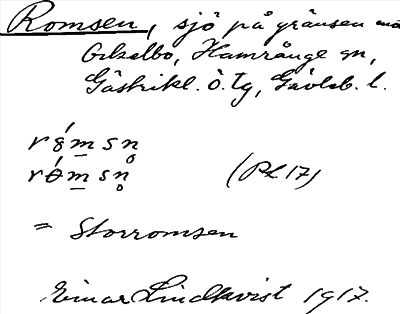 Romsen, sjö på gränsen mot
Ockelbo, Hamrånge sn,
Gästrikl. ö. tg, Gävleb. l.
rómsn̥
(Pl 17)
= Storromsen
Einar Lindkvist 1917.